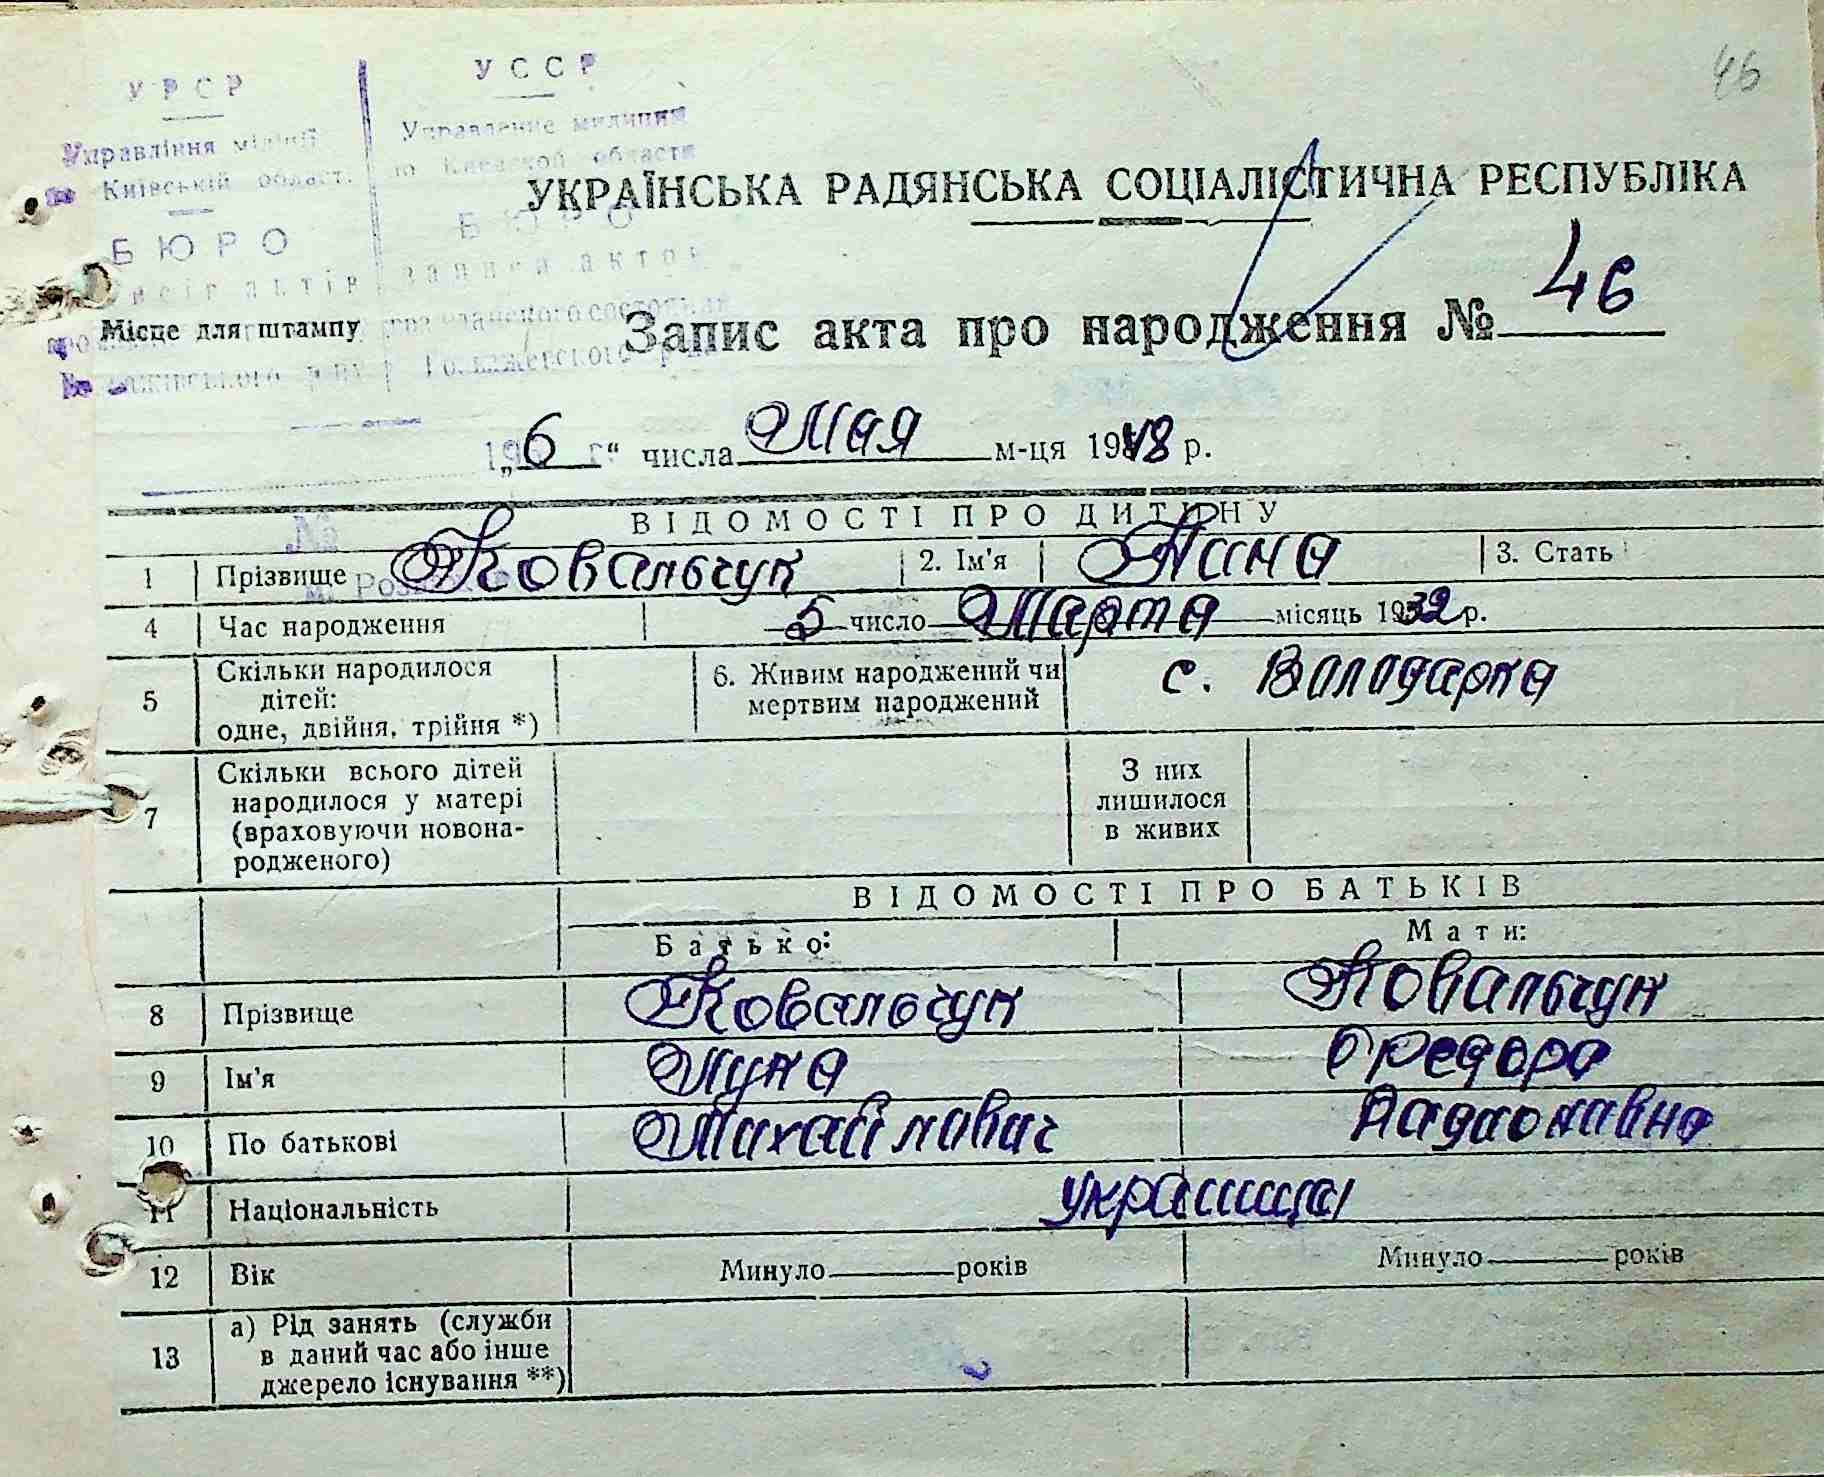 46
УРСР
УССР
Управління міліції
Управление милиции
по Київській област.
по Киевской области
УКРАЇНСЬКА РАДЯНСЬКА СОЦІАЛІСТИЧНА РЕСПУБЛІКА
БЮРО
БЮРО
записи актов
Місце для штампу
Запис акта про народження № 46
„6“ числа Мая м-ця 1948 р.
№
ВІДОМОСТІ ПРО ДИТИНУ
1 Прізвище Ковальчук 2. Ім'я Нина 3. Стать
4 Час народження 5 число Марта місяць 1932 р.
5 Скільки народилося дітей: одне, двійня, трійня *) 6. Живим народжений чи мертвим народжений с. Володарка
7 Скільки всього дітей народилося у матері (враховуючи новонародженого) З них лишилося в живих
ВІДОМОСТІ ПРО БАТЬКІВ
Батько: Мати:
8 Прізвище Ковальчук Ковальчук
9 Ім'я Лука Федора
10 По батькові Михайлович
11 Національність украинцы
12 Вік Минуло ——— років Минуло ——— років
13 а) Рід занять (служби в даний час або інше джерело існування **)